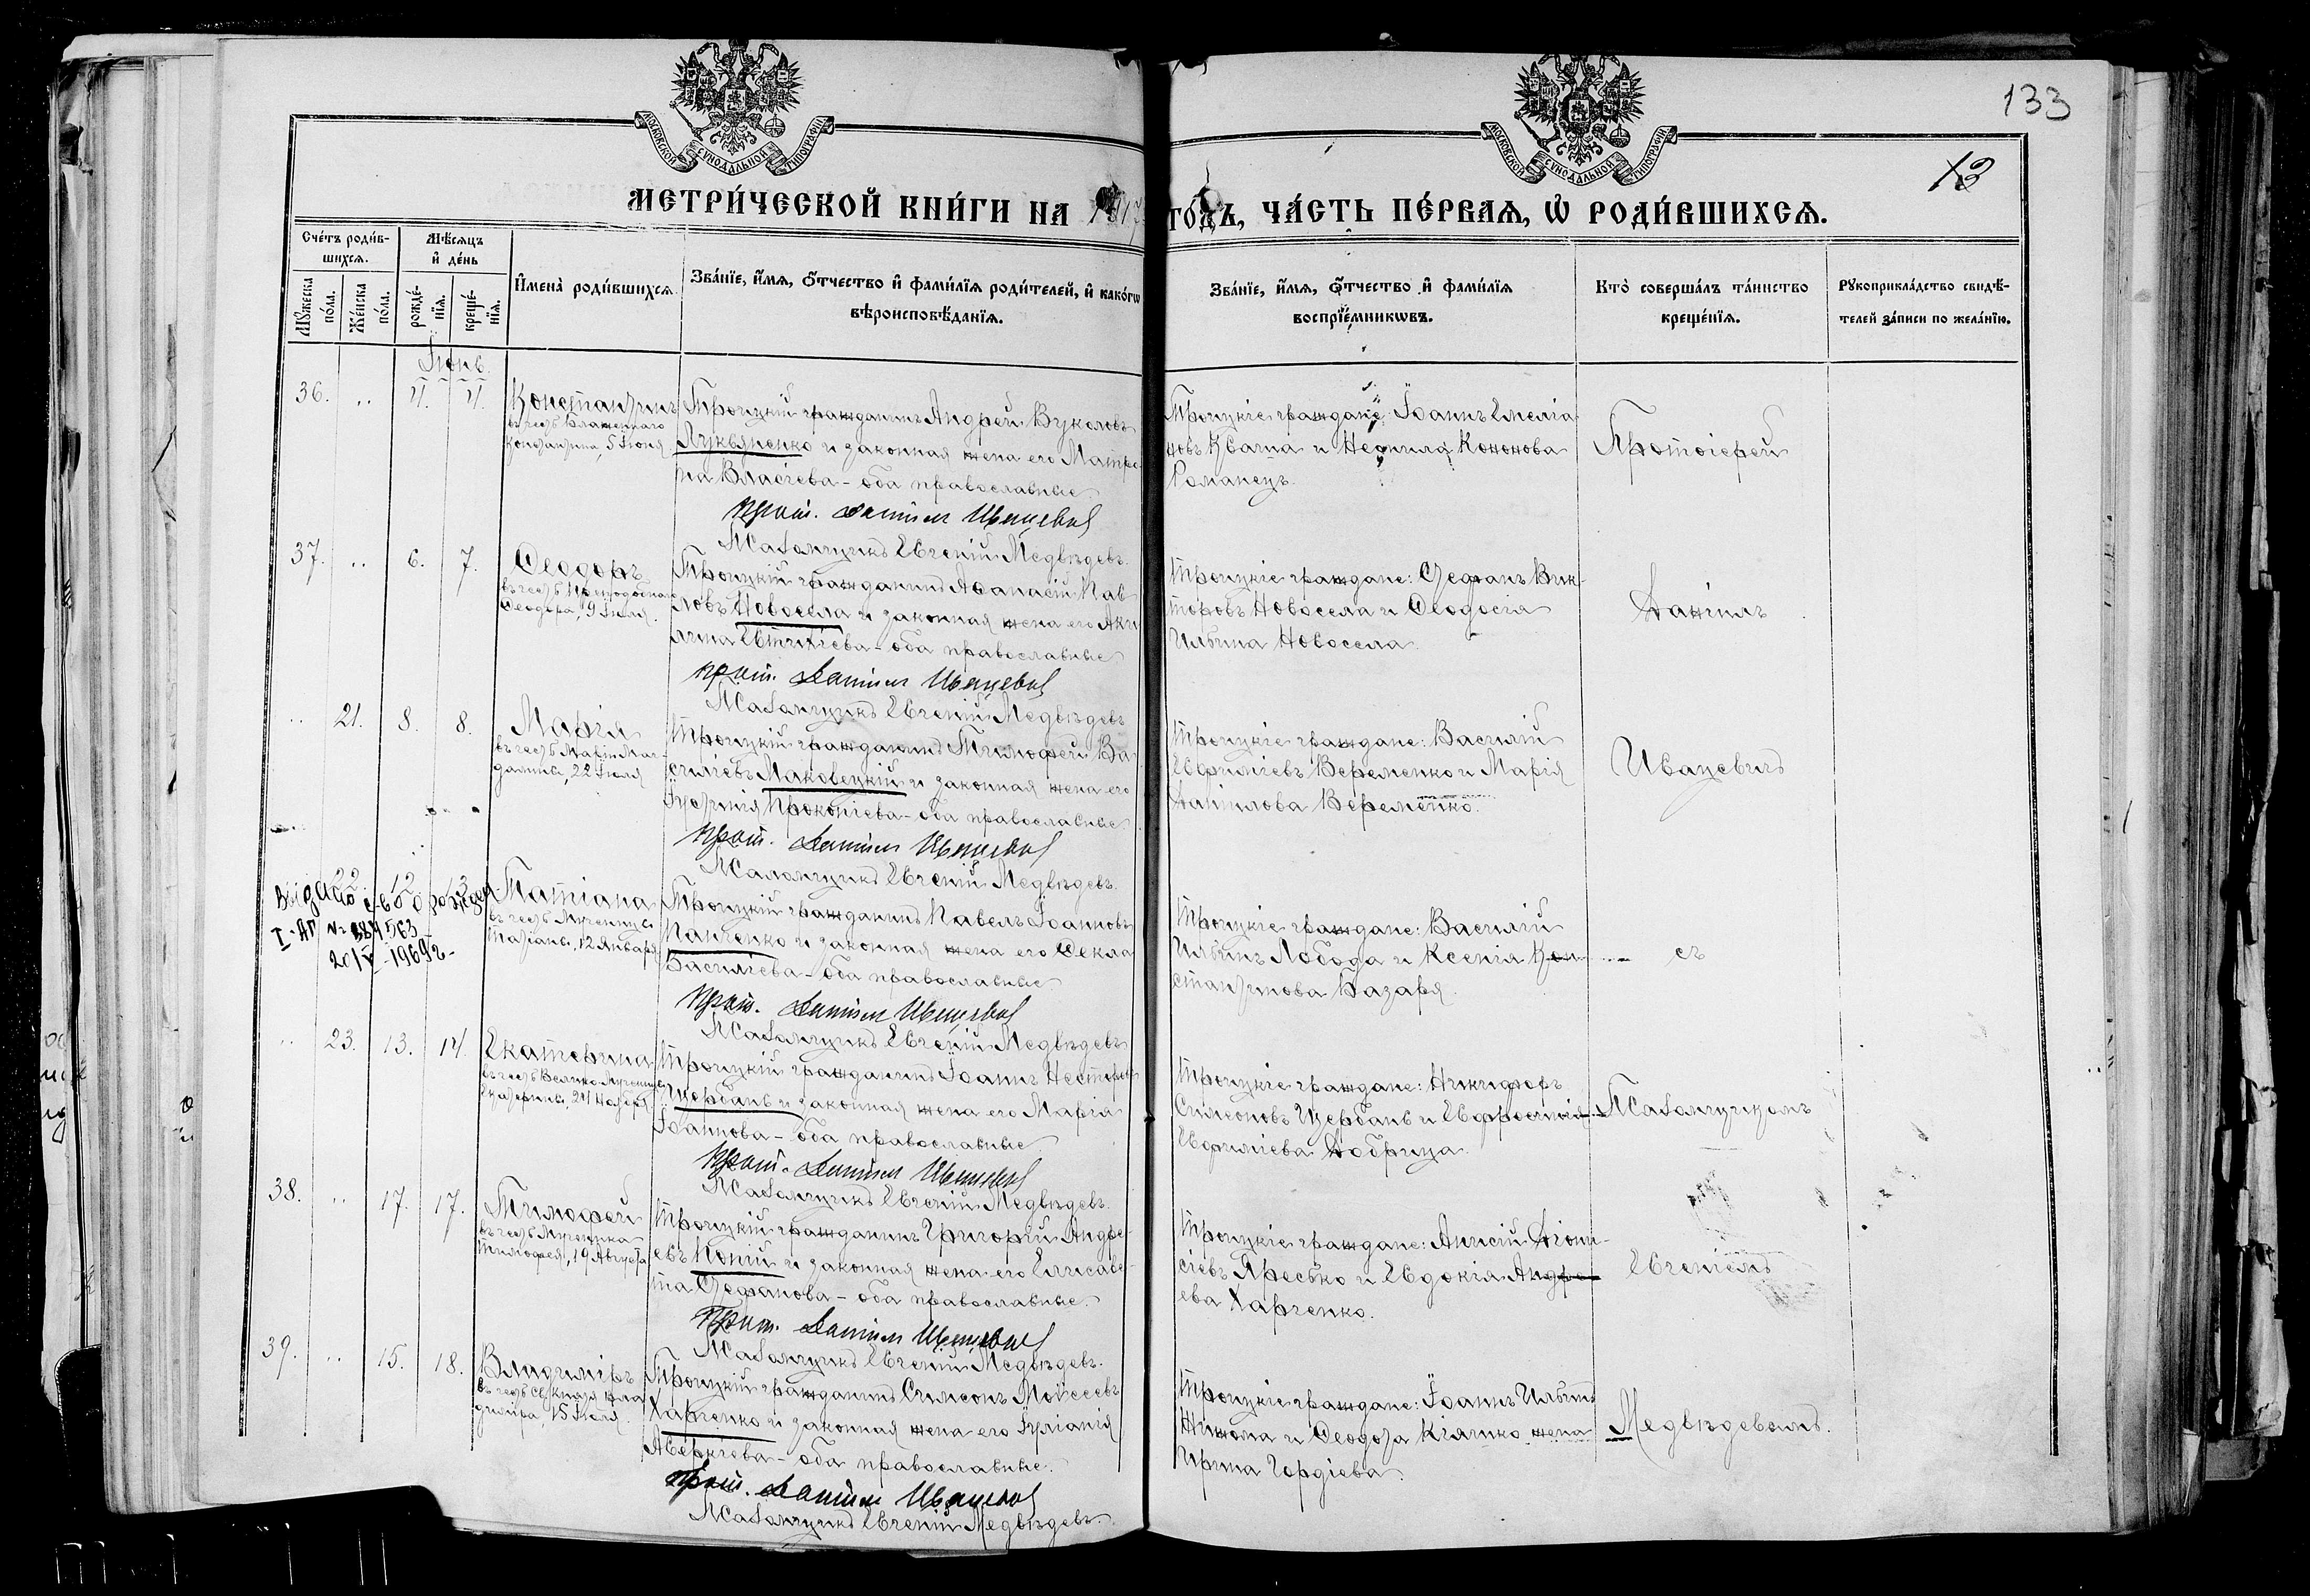 133
13
МОСКОВСКОЙ СѴНОДАЛЬНОЙ ТИПОГРАФІИ
МОСКОВСКОЙ СѴНОДАЛЬНОЙ ТИПОГРАФІИ
МЕТРИ́ЧЕСКОЙ КНИ́ГИ НА 1917
ГО́ДЪ, ЧА́СТЬ ПЕ́РВАѦ, Ѡ҆ РОДИ́ВШИХСѦ.
Сче́тъ роди́в-
шихсѧ.
Мꙋжеска
по́ла.
Же́нска
по́ла.
Мѣ́сѧцъ
и҆ де́нь
рожде́-
нїѧ.
креще́-
нїѧ.
И҆мена̀ роди́вшихсѧ
Зва́нїе, и҆́мѧ, ѻ҆́тчество и҆ фами́лїѧ роди́телей, и҆ како́гѡ
вѣроисповѣ́данїѧ.
Зва́нїе, и҆́мѧ, ѻ҆́тчество и҆ фами́лїѧ
воспрїе́мникѡвъ.
Кто̀ соверша́лъ та́инство
креще́нїѧ.
Рꙋкоприкла́дство свидѣ́-
телей за́писи по жела́нїю.
Іюнь.
36. .. 4. 4. Константинъ
въ честь Блаженнаго
Константина, 5 Іюня
Троицкій гражданинъ Андрей Вуколовъ
Лукьяненко и законная жена его Матре-
на Власіева - оба православные
Прот. Даніилъ Ивацевичъ
Псаломщикъ Евгеній Медвѣдевъ.
Троицкіе граждане: Іоаннъ Емеліа
новъ Квагна и Неонила Кононова
Романецъ.
Протоіерей
37. .. 6. 7. Ѳеодоръ
въ честь Преподобнаго
Ѳеодора, 9 Іюля.
Троицкій гражданинъ Аѳанасій Пав
ловъ Новосела и законная жена его Аки
лина Евтихіева - оба православные
Прот. Даніилъ Ивацевичъ
Псаломщикъ Евгеній Медвѣдевъ
Троицкіе граждане: Стефанъ Вик-
торовъ Новосела и Ѳеодосія
Ильина Новосела.
Даніилъ
.. 21. 8. 8. Марія
въ честь Маріи Маг-
далины, 22 Іюля
Троицкій гражданинъ Тимофей Ва
силіевъ Маковецкій и законная жена его
Іустинія Прокопіева - оба православные.
Прот. Даніилъ Ивацевичъ
Псаломщикъ Евгеній Медвѣдевъ.
Троицкіе граждане: Василій
Евфиміевъ Веременко и Марія
Даніилова Веременко.
Ивацевичъ
22 12 13 Татіана
въ честь Мученицы
Татіаны, 12 Января
Выдано св-во о рожден.
I-АП № 384563
20/V-1969 г-
Троицкій гражданинъ Павелъ Іоанновъ
Панченко и законная жена его Ѳекла
Василіева - оба православные
Прот. Даніилъ Ивацевичъ
Псаломщикъ Евгеній Медвѣдевъ
Троицкіе граждане: Василій
Ильинъ Лобода и Ксенія Кон-
стантинова Базаря.
съ
.. 23. 13. 14. Екатерина
въ честь Великомученицы
Екатерины, 24 Ноября
Троицкій гражданинъ Іоаннъ Несторовъ
Щербань и законная жена его Марія
Іоаннова - оба православные
Прот. Даніилъ Ивацевичъ
Псаломщикъ Евгеній Медвѣдевъ.
Троицкіе граждане: Никифоръ
Симеоновъ Щербань и Евфросинія
Евфиміева Добрица.
Псаломщикомъ
38. .. 17. 17. Тимофей
въ честь Мученика
Тимофея, 19 Августа
Троицкій гражданинъ Григорій Андре-
евъ Копій и законная жена его Елисаве-
та Стефанова - оба православные.
Прот. Даніилъ Ивацевичъ
Псаломщикъ Евгеній Медвѣдевъ.
Троицкіе граждане: Анисій Діони-
сіевъ Яресько и Евдокія Андре-
ева Харченко.
Евгеніемъ
39. .. 15. 18. Владиміръ
въ честь Св. Князя Вла
диміра, 15 Іюля.
Троицкій гражданинъ Симеонъ Мойсеевъ
Харченко и законная жена его Іуліанія
Аверкіева - оба православные.
Прот. Даніилъ Ивацевичъ
Псаломщикъ Евгеній Медвѣдевъ.
Троицкіе граждане: Іоаннъ Ильинъ
и Ѳеодота Кіяшко жена
Ирина Гордіева.
Медвѣдевымъ.